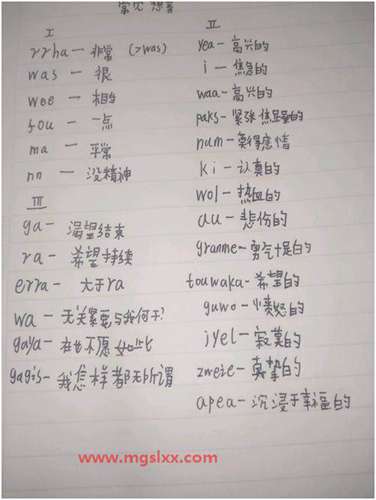 常见
I
rrha — 非常 (>was)
was — 很
wee — 相当
fou — 一点
ma — 平常
nn — 没精神
III
ga — 渴望结束
ra — 希望持续
erra — 大于ra
wa — 无关紧要与我何干?
gaya — 在也不愿如此
gagis — 我怎样都无所谓
II
yea - 高兴的
i - 焦急的
waa - 高兴的
paks - 紧张
num - 莫得感情
ki - 认真的
wol - 热血的
au - 悲伤的
granme - 勇气十足的
touwaka - 希望的
guwo - 愤怒的
jyel - 寂寞的
zweie - 真挚的
apea - 沉浸于幸福的
www.mgslxx.com